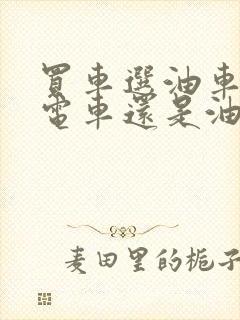 買車選油車
電車還是油
麦田里的栀子